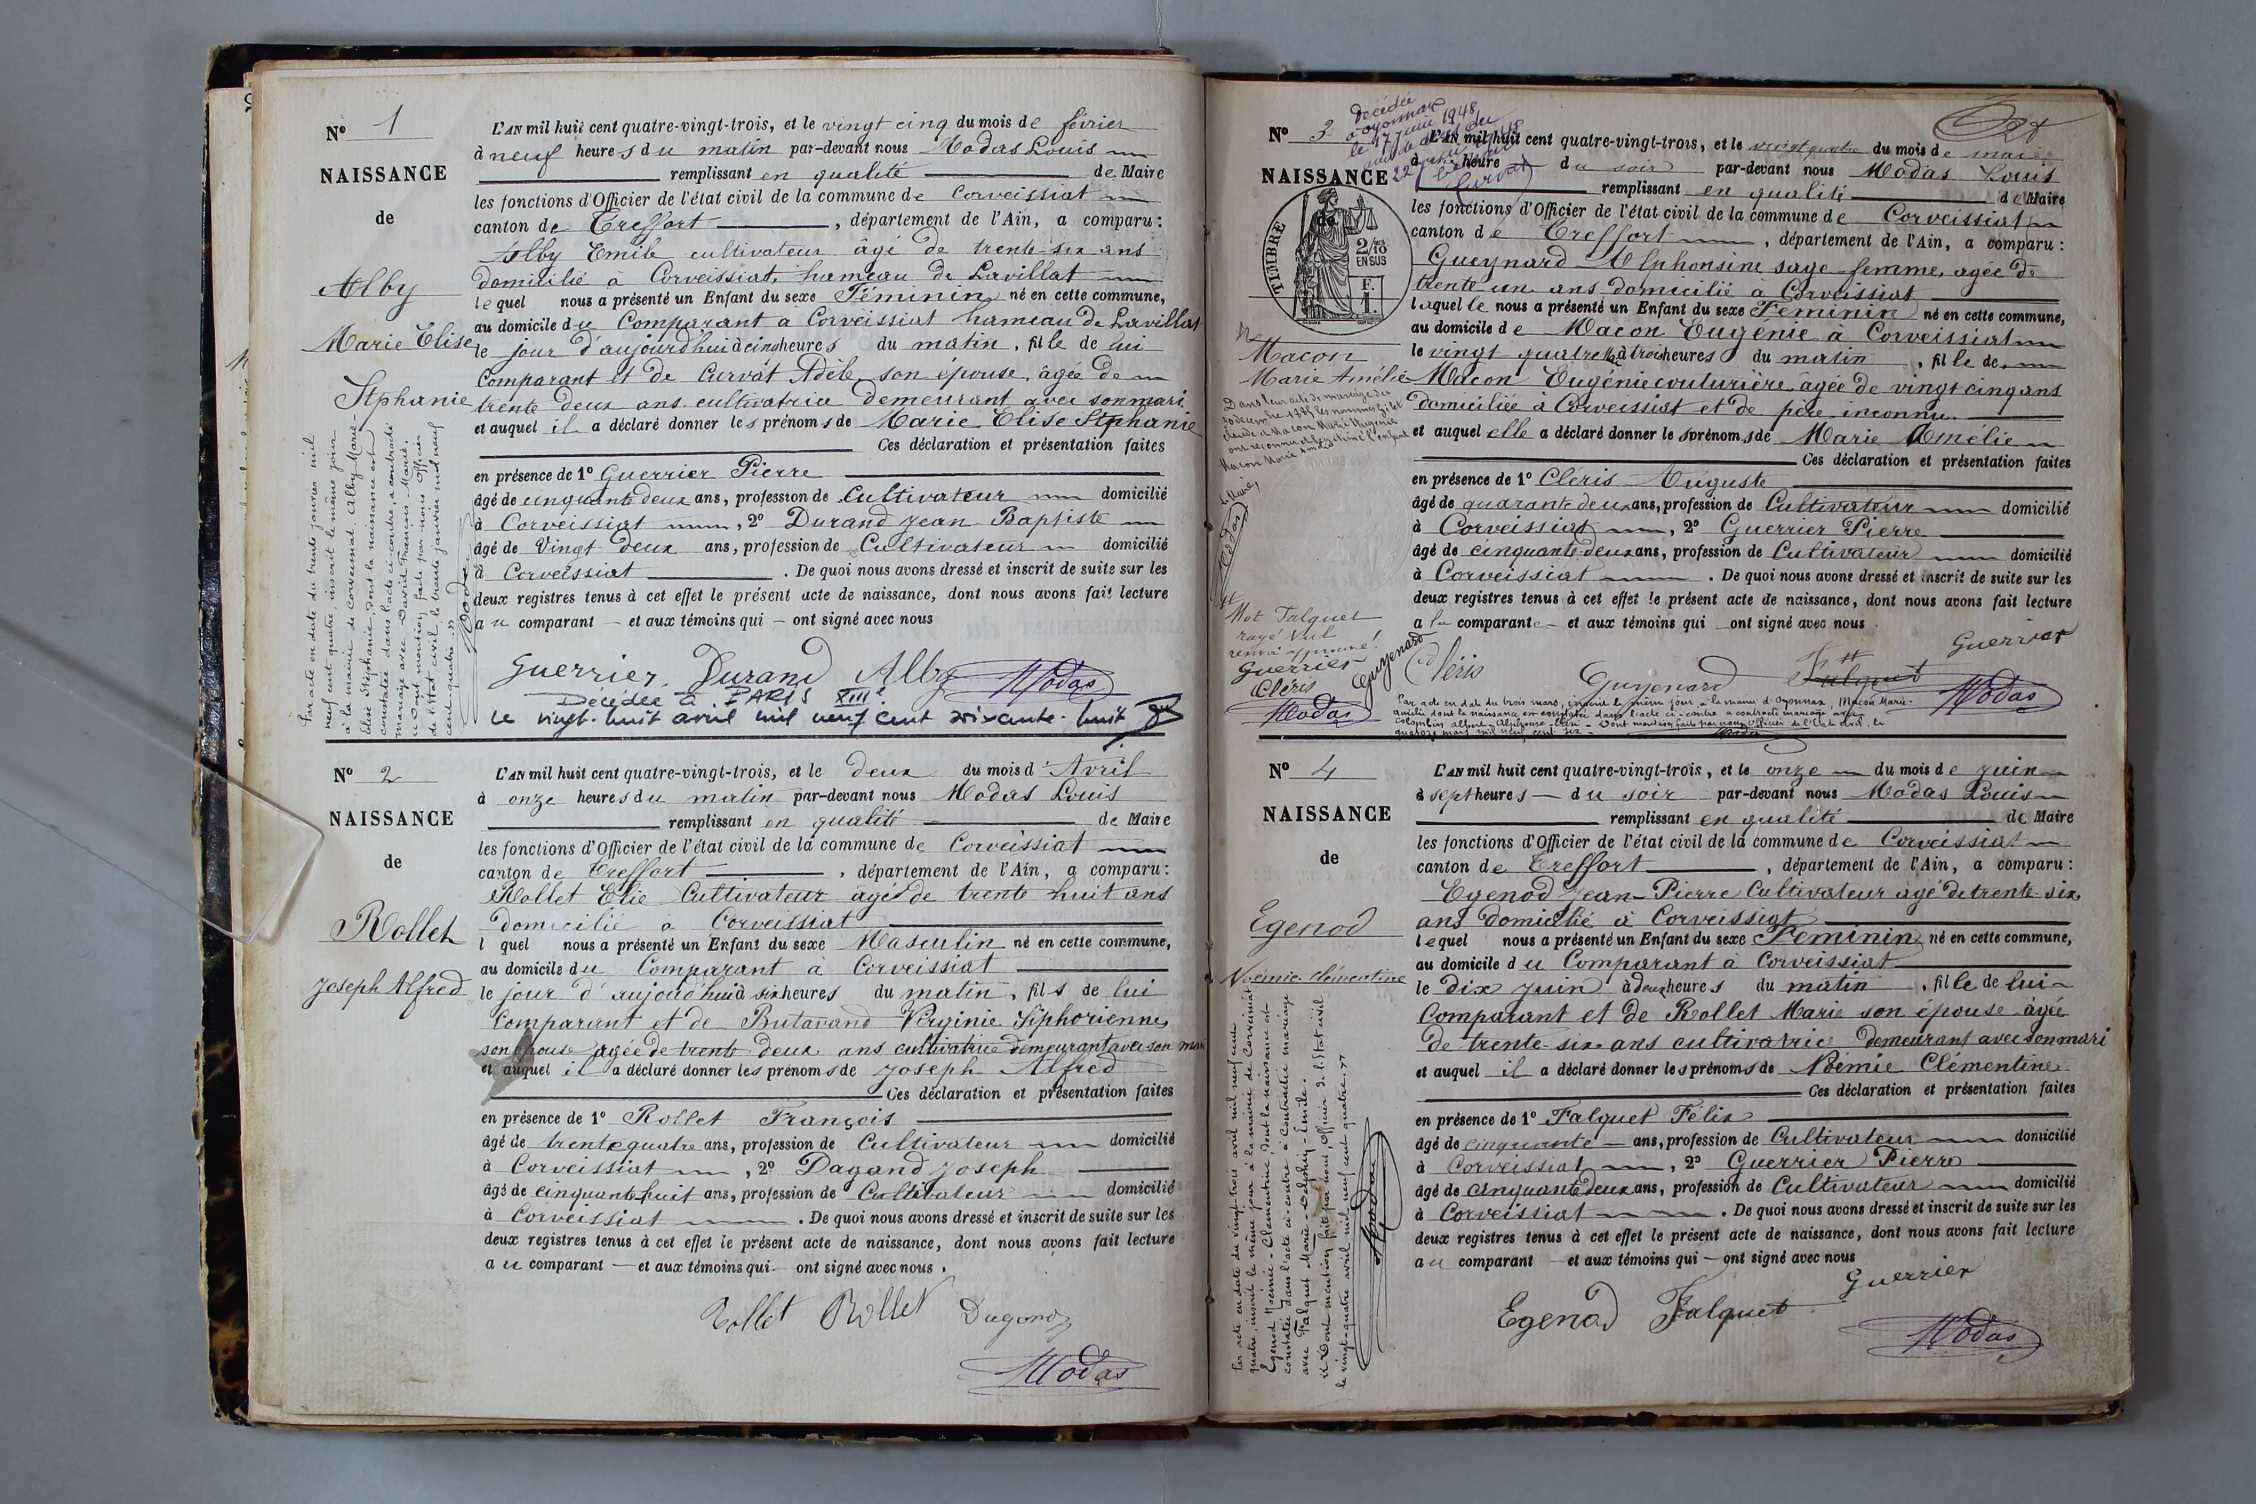 Nº 1
NAISSANCE
de
Alby
Marie Elise
Stphanie
Par acte en date du trente janvier mil
neuf cent quatre, inscrit le même jour
à la mairie de Corveissiat, Alby Marie
Elise Stéphanie, dont la naissance est
constatée dans l'acte ci-contre, a contracté
mariage avec David François Marie.
Dont mention faite par nous Officier
de l'Etat civil, le trente janvier mil neuf
cent quatre.
L'AN mil huit cent quatre-vingt-trois, et le vingt cinq du mois de février
à neuf heures du matin par-devant nous Modas Louis
remplissant en qualité de Maire
les fonctions d'Officier de l'état civil de la commune de Corveissiat
canton de Treffort, département de l'Ain, a comparu:
Alby Emile cultivateur âgé de trente-six ans
domicilié à Corveissiat, hameau de Lavillat
lequel nous a présenté un Enfant du sexe Féminin né en cette commune,
au domicile du Comparant à Corveissiat hameau de Lavillat
le jour d'aujourd'hui à cinq heures du matin, fille de lui
Comparant et de Curvat Adèle son épouse, âgée de
trente deux ans cultivatrice demeurant avec son mari
et auquel il a déclaré donner les prénoms de Marie Elise Stphanie
Ces déclaration et présentation faites
en présence de 1º Guerrier Pierre
âgé de cinquante deux ans, profession de Cultivateur domicilié
à Corveissiat, 2º Durand Jean Baptiste
âgé de Vingt deux ans, profession de Cultivateur domicilié
à Corveissiat. De quoi nous avons dressé et inscrit de suite sur les
deux registres tenus à cet effet le présent acte de naissance, dont nous avons fait lecture
au comparant et aux témoins qui ont signé avec nous
Guerrier Durand Alby Modas
Décédée à PARIS XIIIe
le vingt-huit avril mil neuf cent soixante-huit
Nº 2
NAISSANCE
de
Rollet
Joseph Alfred
L'AN mil huit cent quatre-vingt-trois, et le deux du mois d'Avril
à onze heures du matin par-devant nous Modas Louis
remplissant en qualité de Maire
les fonctions d'Officier de l'état civil de la commune de Corveissiat
canton de Treffort, département de l'Ain, a comparu:
Rollet Elie Cultivateur âgé de trente huit ans
domicilié à Corveissiat
l quel nous a présenté un Enfant du sexe Masculin né en cette commune,
au domicile du Comparant à Corveissiat
le jour d'aujoud'hui à six heures du matin, fils de lui
Comparant et de Butavand Virginie Siphorienne
son épouse âgée de trente deux ans cultivatrice demeurant avec son mari
et auquel il a déclaré donner les prénoms de Joseph Alfred
Ces déclaration et présentation faites
en présence de 1º Rollet François
âgé de trente quatre ans, profession de Cultivateur domicilié
à Corveissiat, 2º Dagand Joseph
âgé de cinquante huit ans, profession de Cultivateur domicilié
à Corveissiat. De quoi nous avons dressé et inscrit de suite sur les
deux registres tenus à cet effet le présent acte de naissance, dont nous avons fait lecture
au comparant et aux témoins qui ont signé avec nous.
Rollet Rollet Dagand
Modas
Nº 3
Décédée
à Oyonnax
le 17 juin 1948
NAISSANCE
de
TIMBRE
2/10
EN SUS
F.
1.
Macon
Marie Amélie
Mot Falquet
rayé nul
renvoi approuvé!
Guerrier
Cléris
Guyenard
Modas
L'AN mil huit cent quatre-vingt-trois, et le vingt quatre du mois de mai
à heure du soir par-devant nous Modas Louis
remplissant en qualité de Maire
les fonctions d'Officier de l'état civil de la commune de Corveissiat
canton de Treffort, département de l'Ain, a comparu:
Gueynard Alphonsine sage-femme, agée de
trente un ans domicilié à Corveissiat
laquelle nous a présenté un Enfant du sexe Féminin né en cette commune,
au domicile de Macon Eugénie à Corveissiat
le vingt quatre Mai à trois heures du matin, fille de
Macon Eugénie couturière âgée de vingt cinq ans
domiciliée à Corveissiat et de père inconnu
et auquel elle a déclaré donner le s prénoms de Marie Amélie
Ces déclaration et présentation faites
en présence de 1º Cléris Auguste
âgé de quarante deux ans, profession de Cultivateur domicilié
à Corveissiat, 2º Guerrier Pierre
âgé de cinquante-deux ans, profession de Cultivateur domicilié
à Corveissiat. De quoi nous avons dressé et inscrit de suite sur les
deux registres tenus à cet effet le présent acte de naissance, dont nous avons fait lecture
a la comparante et aux témoins qui ont signé avec nous
Cléris Guyenard Falquet Guerrier
Modas
Par acte en date du trois mars, inscrit le même jour, à la mairie d'Oyonnax, Macon Marie-
Amélie dont la naissance est constatée dans l'acte ci-contre a contracté mariage avec
Dont mention faite par nous Officier de l'Etat civil, le
quatorze mars mil neuf cent six.
Nº 4
NAISSANCE
de
Egenod
Noémie Clémentine
Par acte en date du vingt-trois avril mil neuf cent
quatre, inscrit le même jour à la mairie de Corveissiat
Egenod Noémie-Clémentine, dont la naissance est
constatée dans l'acte ci-contre a contracté mariage
avec Falquet Marie-Delphin-Emile.
Dont mention faite par nous, Officier de l'Etat civil
le vingt-quatre avril mil neuf cent quatre.
L'AN mil huit cent quatre-vingt-trois, et le onze du mois de juin
à sept heures du soir par-devant nous Modas Louis
remplissant en qualité de Maire
les fonctions d'Officier de l'état civil de la commune de Corveissiat
canton de Treffort, département de l'Ain, a comparu:
Egenod Jean-Pierre Cultivateur âgé de trente-six
ans domicilié à Corveissiat
lequel nous a présenté un Enfant du sexe Féminin né en cette commune,
au domicile du Comparant à Corveissiat
le Dix juin à deux heures du matin, fille de lui
Comparant et de Rollet Marie son épouse âgée
de trente-six ans cultivatrice demeurant avec son mari
et auquel il a déclaré donner les prénoms de Noémie Clémentine
Ces déclaration et présentation faites
en présence de 1º Falquet Félix
âgé de cinquante ans, profession de Cultivateur domicilié
à Corveissiat, 2º Guerrier Pierre
âgé de cinquante deux ans, profession de Cultivateur domicilié
à Corveissiat. De quoi nous avons dressé et inscrit de suite sur les
deux registres tenus à cet effet le présent acte de naissance, dont nous avons fait lecture
au comparant et aux témoins qui ont signé avec nous
Egenod Falquet Guerrier
Modas